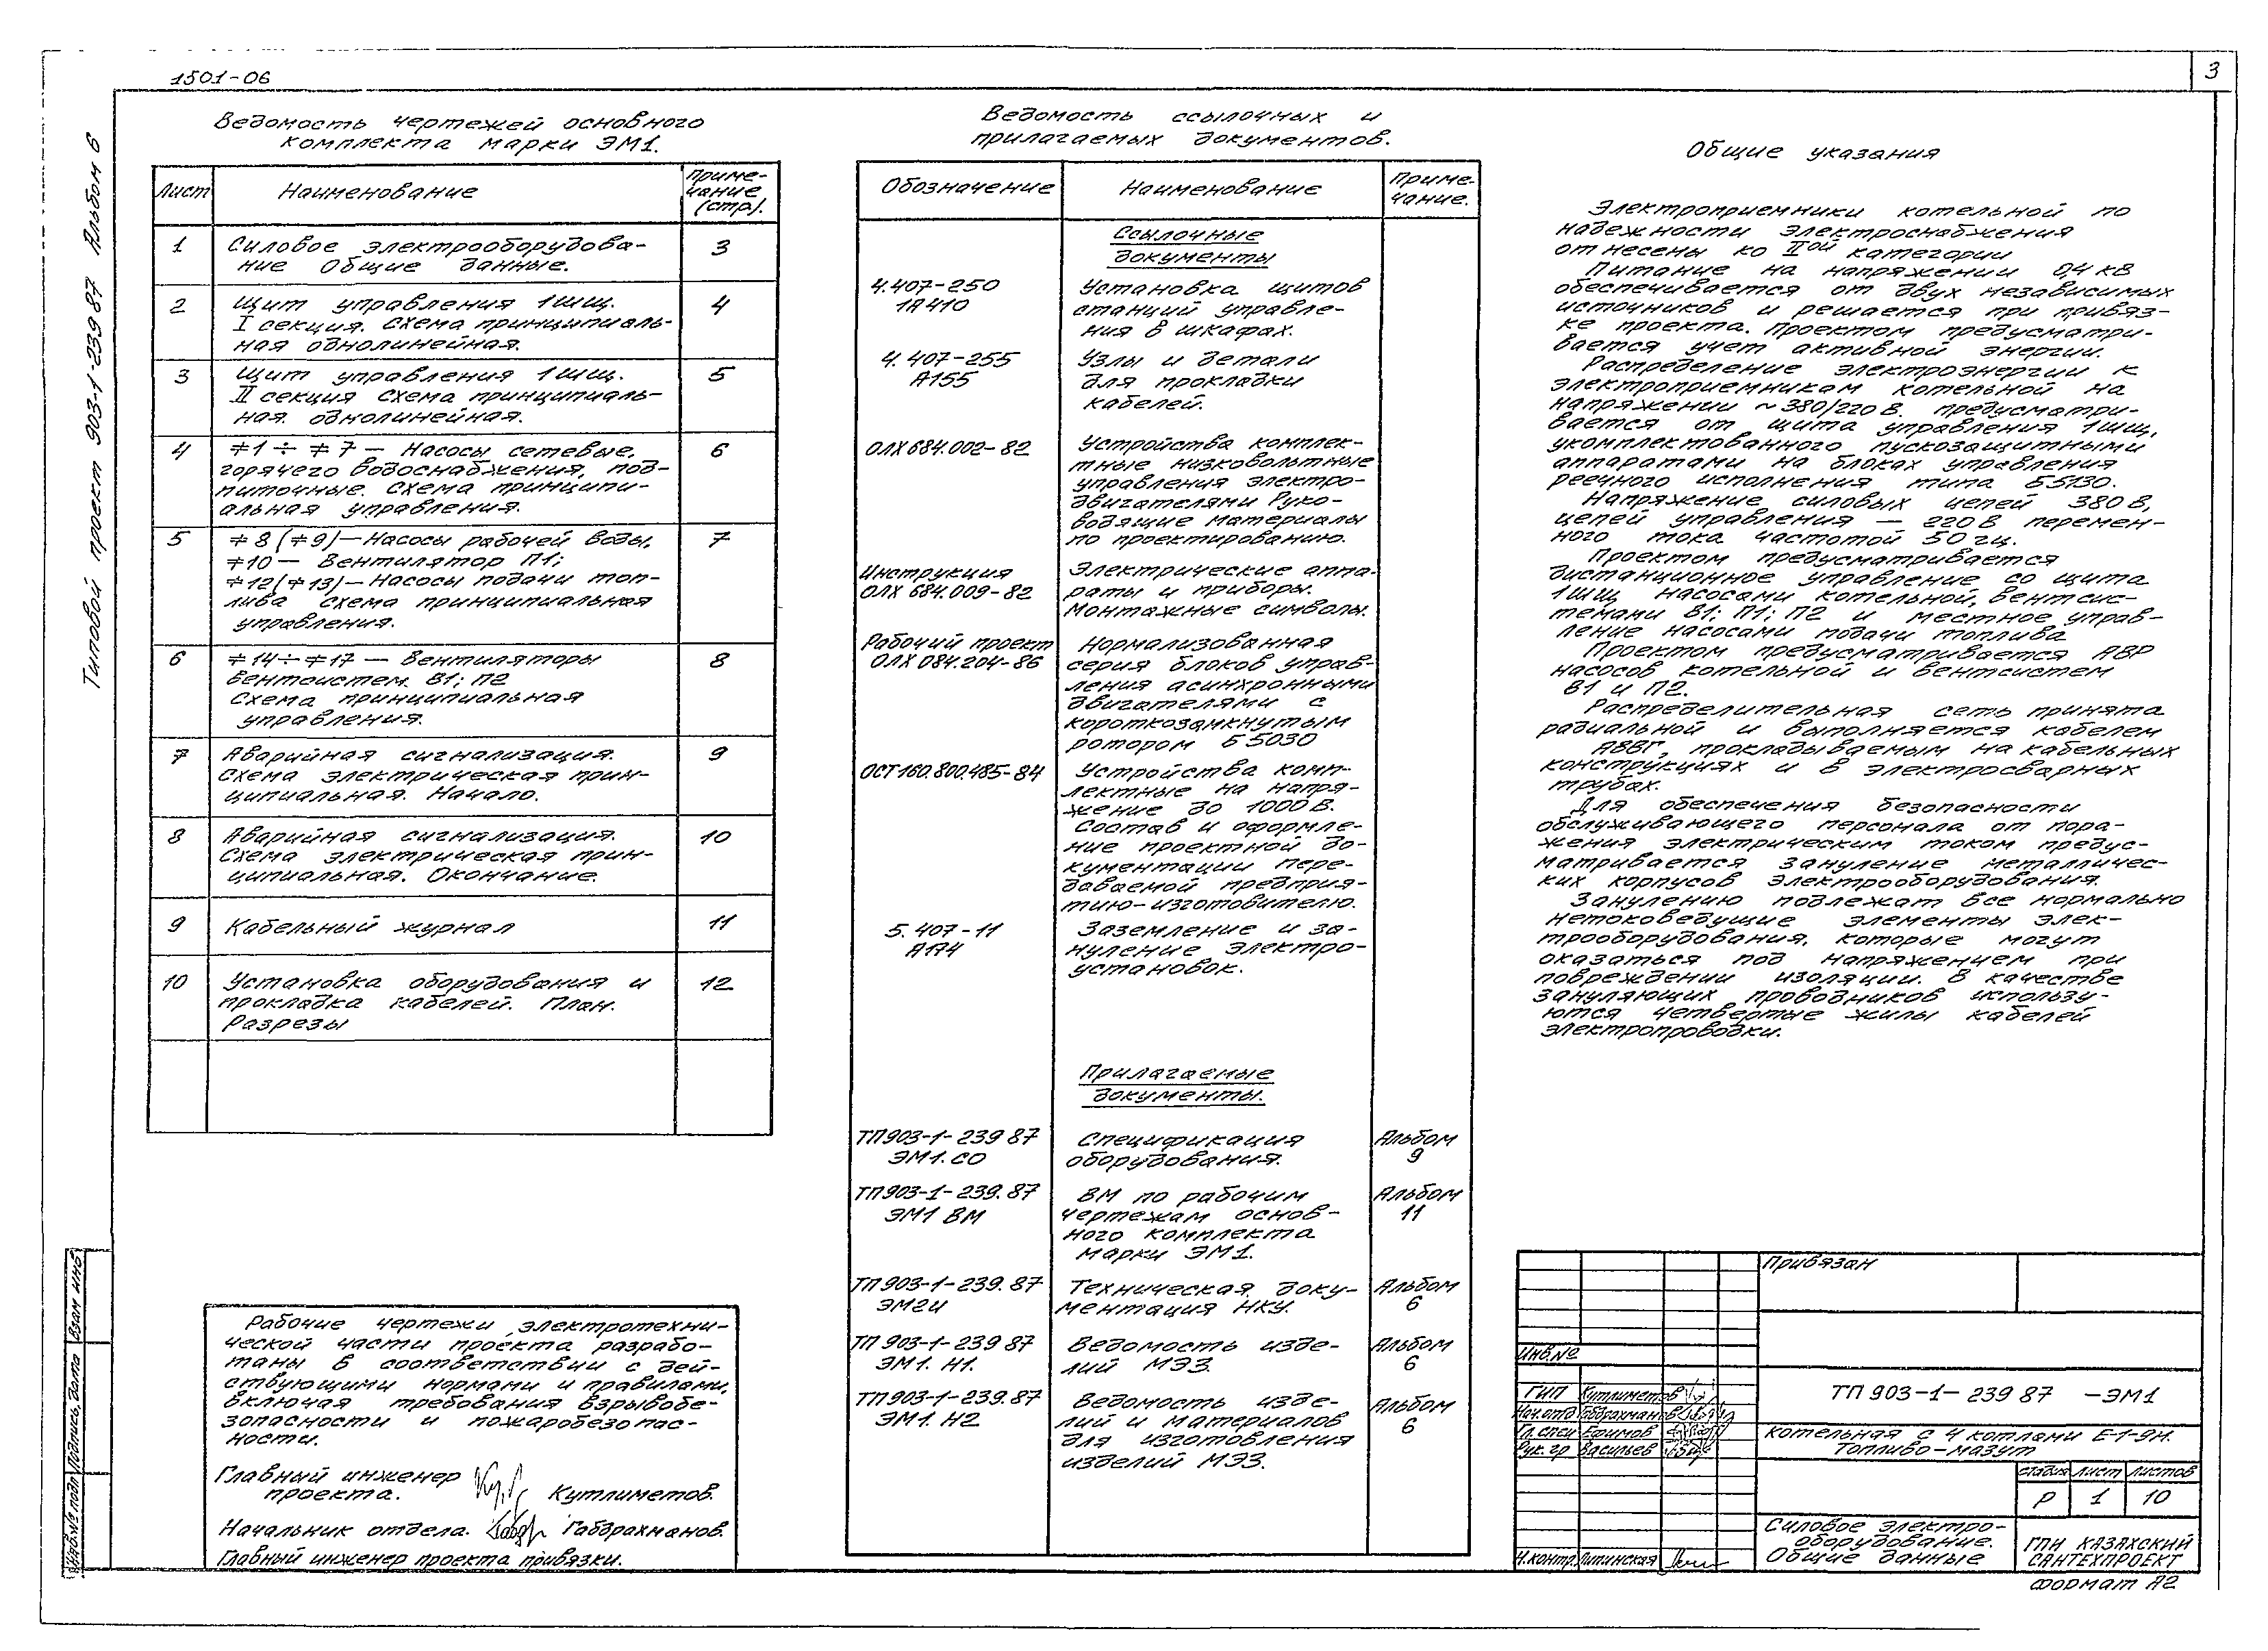 1501-06
3
Типовой проект 903-1-239 87 Альбом 6
Ведомость чертежей основного
комплекта марки ЭМ1.
Лист
Наименование
Приме-
чание
(стр).
1
Силовое электрооборудова-
ние Общие данные.
3
2
Щит управления 1ШЩ.
I секция. Схема принципиаль-
ная однолинейная.
4
3
Щит управления 1ШЩ.
II секция Схема принципиаль-
ная. однолинейная.
5
4
≠1 ÷ ≠7 — Насосы сетевые,
горячего водоснабжения, под-
питочные. Схема принципи-
альная управления.
6
5
≠8 (≠9) — Насосы рабочей воды,
≠10 — Вентилятор П1;
≠12(≠13) — Насосы подачи топ-
лива Схема принципиальная
управления.
7
6
≠14 ÷ ≠17 — Вентиляторы
вентсистем. В1; П2
Схема принципиальная
управления.
8
7
Аварийная сигнализация.
Схема электрическая прин-
ципиальная. Начало.
9
8
Аварийная сигнализация.
Схема электрическая прин-
ципиальная. Окончание.
10
9
Кабельный журнал
11
10
Установка оборудования и
прокладка кабелей. План.
Разрезы
12
Рабочие чертежи электротехни-
ческой части проекта разрабо-
таны в соответствии с дей-
ствующими нормами и правилами,
включая требования взрывобе-
зопасности и пожаробезопас-
ности.
Главный инженер
проекта. Кутлиметов.
Начальник отдела. Габдрахманов.
Главный инженер проекта привязки.
Ведомость ссылочных и
прилагаемых документов.
Обозначение
Наименование
Приме-
чание.
Ссылочные
документы
4.407-250
1А410
Установка щитов
станций управле-
ния в шкафах.
4.407-255
А155
Узлы и детали
для прокладки
кабелей.
ОЛХ 684.002-82
Устройства комплек-
тные низковольтные
управления электро-
двигателями Руко-
водящие материалы
по проектированию.
Инструкция
ОЛХ 684.009-82
Электрические аппа-
раты и приборы.
Монтажные символы.
Рабочий проект
ОЛХ 084.204-86
Нормализованная
серия блоков управ-
ления асинхронными
двигателями с
короткозамкнутым
ротором Б5030
ОСТ 160.800.485-84
Устройства комп-
лектные на напря-
жение до 1000 В.
Состав и оформле-
ние проектной до-
кументации пере-
даваемой предприя-
тию-изготовителю.
5.407-11
А174
Заземление и за-
нуление электро-
установок.
Прилагаемые
документы.
ТП 903-1-239 87
ЭМ1. СО
Спецификация
оборудования.
Альбом
9
ТП 903-1-239.87
ЭМ1 ВМ
ВМ по рабочим
чертежам основ-
ного комплекта
марки ЭМ1.
Альбом
11
ТП 903-1-239.87
ЭМ2И
Техническая доку-
ментация НКУ.
Альбом
6
ТП 903-1-239 87
ЭМ1. Н1.
Ведомость изде-
лий МЭЗ.
Альбом
6
ТП 903-1-239.87
ЭМ1. Н2
Ведомость изде-
лий и материалов
для изготовления
изделий МЭЗ.
Альбом
6
Общие указания
Электроприемники котельной по
надежности электроснабжения
отнесены ко IIой категории
Питание на напряжении 0,4 кВ
обеспечивается от двух независимых
источников и решается при привяз-
ке проекта. Проектом предусматри-
вается учет активной энергии.
Распределение электроэнергии к
электроприемникам котельной на
напряжении ~380/220 В. предусматри-
вается от щита управления 1ШЩ,
укомплектованного пускозащитными
аппаратами на блоках управления
реечного исполнения типа Б5130.
Напряжение силовых цепей 380 В,
цепей управления — 220 В перемен-
ного тока частотой 50 гц.
Проектом предусматривается
дистанционное управление со щита
1ШЩ насосами котельной, вентсис-
темами В1; П1; П2 и местное управ-
ление насосами подачи топлива
Проектом предусматривается АВР
насосов котельной и вентсистем
В1 и П2.
Распределительная сеть принята
радиальной и выполняется кабелем
АВВГ, прокладываемым на кабельных
конструкциях и в электросварных
трубах.
Для обеспечения безопасности
обслуживающего персонала от пора-
жения электрическим током предус-
матривается зануление металличес-
ких корпусов электрооборудования.
Занулению подлежат все нормально
нетоковедущие элементы элек-
трооборудования, которые могут
оказаться под напряжением при
повреждении изоляции. В качестве
зануляющих проводников использу-
ются четвертые жилы кабелей
электропроводки.
Привязан
Инв.№
ГИП Кутлиметов
Нач.отд Габдрахманов
Гл.спец Ефимов
Рук.гр Васильев
Н.контр. Липинская
ТП 903-1-239 87 -ЭМ1
Котельная с 4 котлами Е-1-9М.
Топливо-мазут
стадия
лист
листов
Р
1
10
Силовое электро-
оборудование.
Общие данные
ГПИ КАЗАХСКИЙ
САНТЕХПРОЕКТ
Формат А2
Взам инв
Подпись, дата
Инв.№ подл